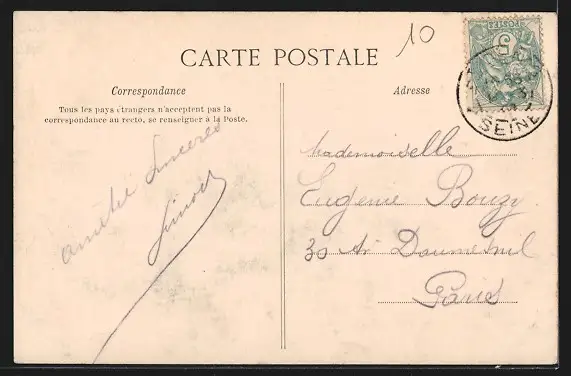 10
CARTE POSTALE
Correspondance
Tous les pays étrangers n'acceptent pas la
correspondance au recto, se renseigner à la Poste.
Amitié Sincères
Adresse
Mademoiselle
Eugenie Bouzy
30 Av Daumesnil
Paris
POSTES
5
SEINE